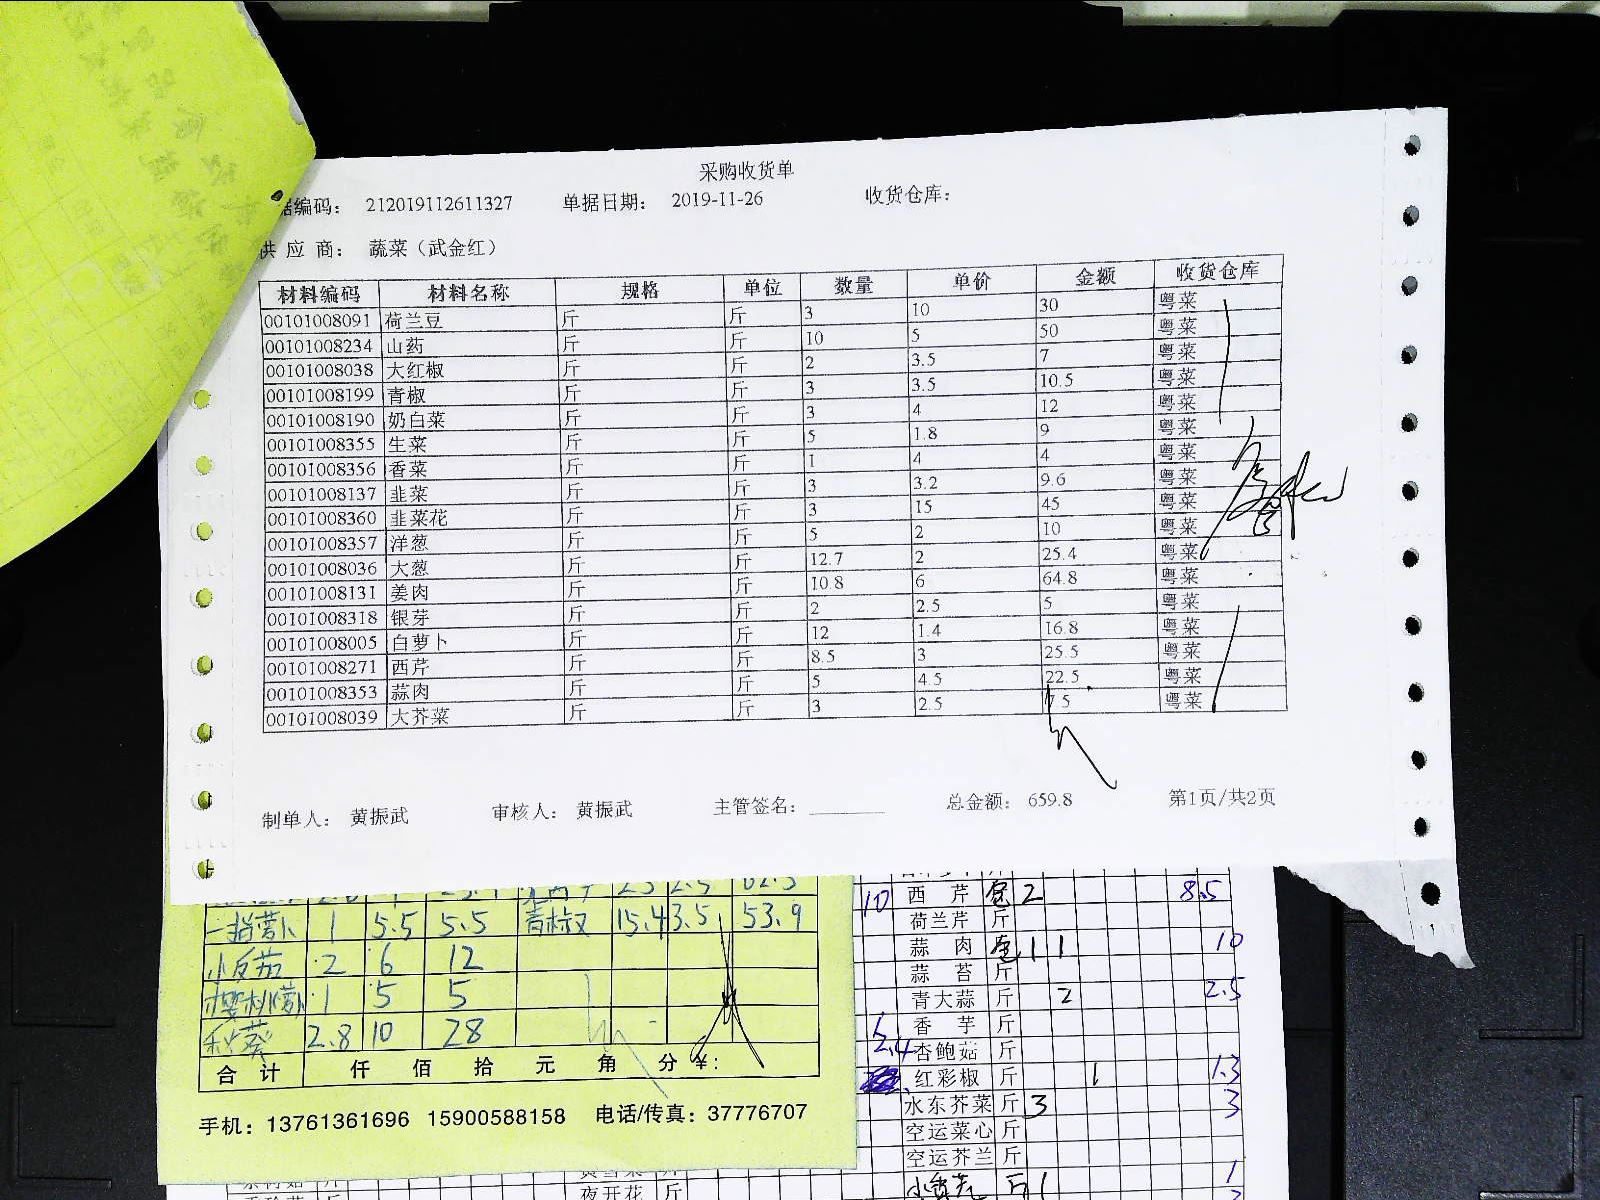 采购收货单
据编码： 212019112611327 单据日期： 2019-11-26 收货仓库：
供 应 商： 蔬菜（武金红）
材料编码 材料名称 规格 单位 数量 单价 金额 收货仓库
00101008091 荷兰豆 斤 斤 3 10 30 粤菜
00101008234 山药 斤 斤 10 5 50 粤菜
00101008038 大红椒 斤 斤 2 3.5 7 粤菜
00101008199 青椒 斤 斤 3 3.5 10.5 粤菜
00101008190 奶白菜 斤 斤 3 4 12 粤菜
00101008355 生菜 斤 斤 5 1.8 9 粤菜
00101008356 香菜 斤 斤 1 4 4 粤菜
00101008137 韭菜 斤 斤 3 3.2 9.6 粤菜
00101008360 韭菜花 斤 斤 3 15 45 粤菜
00101008357 洋葱 斤 斤 5 2 10 粤菜
00101008036 大葱 斤 斤 12.7 2 25.4 粤菜
00101008131 姜肉 斤 斤 10.8 6 64.8 粤菜
00101008318 银芽 斤 斤 2 2.5 5 粤菜
00101008005 白萝卜 斤 斤 12 1.4 16.8 粤菜
00101008271 西芹 斤 斤 8.5 3 25.5 粤菜
00101008353 蒜肉 斤 斤 5 4.5 22.5 粤菜
00101008039 大芥菜 斤 斤 3 2.5 7.5 粤菜
制单人： 黄振武 审核人： 黄振武 主管签名： 总金额： 659.8 第1页/共2页
1 5.5 5.5 青椒 15.4 3.5 53.9
2 6 12
1 5 5
秋葵 2.8 10 28
合 计 仟 佰 拾 元 角 分 ¥：
手机：13761361696 15900588158 电话/传真：37776707
10 西 芹 2 8.5
荷兰芹 斤
蒜 肉 1 1 10
蒜 苔 斤
青大蒜 斤 2 2.5
香 芋 斤
2.4 杏鲍菇 斤
红彩椒 斤 1 1.3
水东芥菜 斤 3 3
空运菜心 斤
空运芥兰 斤
斤 1 1
夜开花 斤